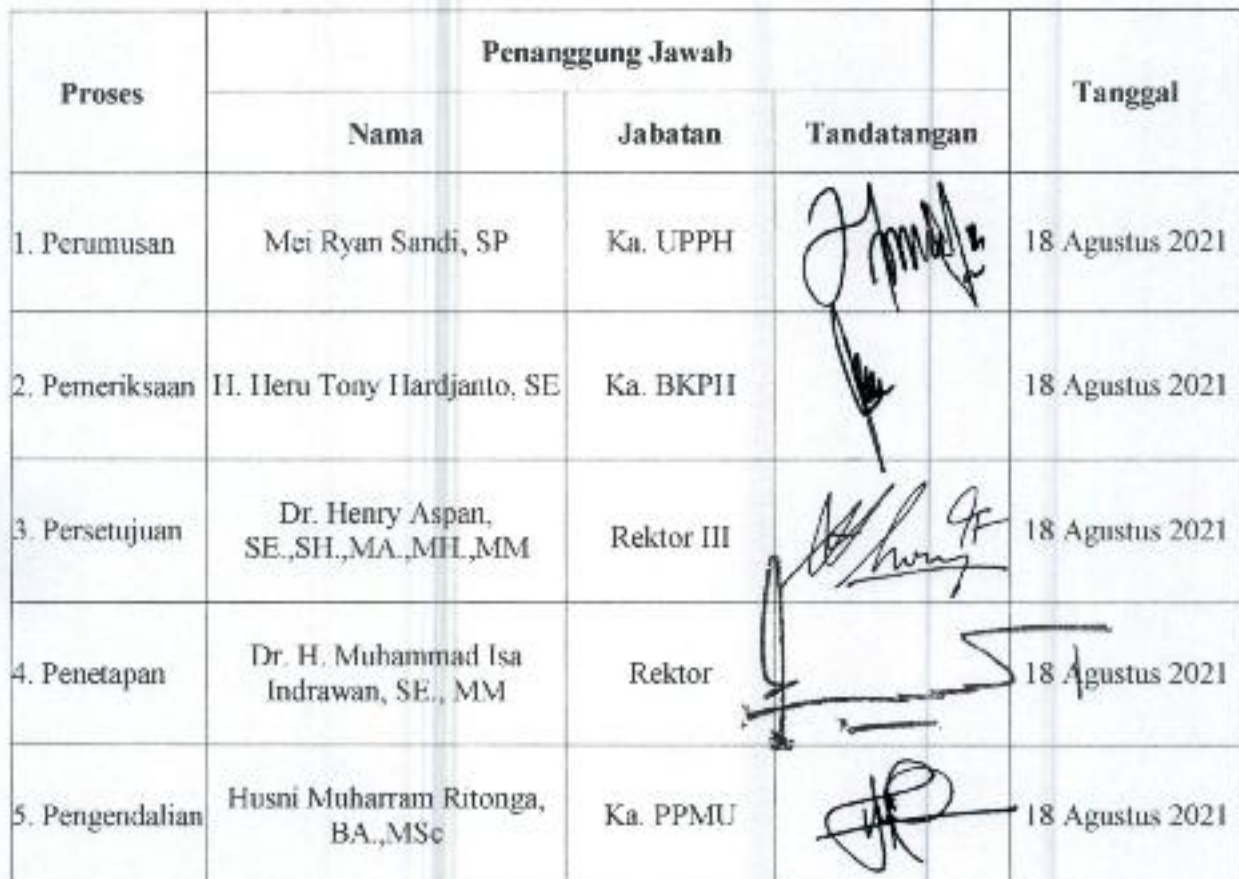 Proses
Penanggung Jawab
Tanggal
Nama
Jabatan
Tandatangan
1. Perumusan
Mei Ryan Sandi, SP
Ka. UPPH
18 Agustus 2021
2. Pemeriksaan
H. Heru Tony Hardjanto, SE
Ka. BKPH
18 Agustus 2021
3. Persetujuan
Dr. Henry Aspan,
SE.,SH.,MA.,MH.,MM
Rektor III
18 Agustus 2021
4. Penetapan
Dr. H. Muhammad Isa
Indrawan, SE., MM
Rektor
18 Agustus 2021
5. Pengendalian
Husni Muharram Ritonga,
BA.,MSc
Ka. PPMU
18 Agustus 2021